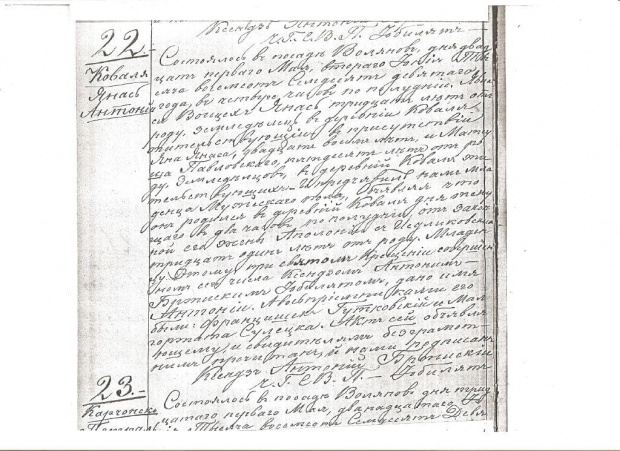 Ксендзъ Антоній
22.
Коваля
Янасъ
Антоній
Состоялось въ посадѣ Воляновъ, дня двад
цать перваго Мая, втораго Іюня Тыся
ча восемсотъ Семдесятъ девятаго
года, въ четыре часовъ по полудни. Яви
ся Войцехъ Янасъ тридцать лѣтъ отъ
роду, земледѣлецъ въ деревнѣ Коваля
жительствующій въ присутствіи
Яна Янаса, двадцать восемь лѣтъ, и Мате
ша Павловскаго, пятдесятъ лѣтъ отъ ро
ду, земледѣльцовъ, въ деревнѣ Коваля жи
тельствующихъ и предъявилъ намъ мла
денца Мужескаго пола, объявляя что
онъ родился въ деревнѣ Коваля дня теку
щаго въ два часовъ по полудни, отъ закон
ной его жены Аполоніи
тридцать одинъ лѣтъ отъ роду. Младен
цу этому при святомъ крещеніи совершен
номъ сего числа Ксендзомъ Антонимъ
Юбилятомъ, дано имя
Антоній, а воспріемниками его
были: Францишекъ Гутковскій и Мал
горжата Сулецка. Актъ сей объявля
ющему и свидѣтелямъ безграмот
нымъ прочитанъ, и нами подписанъ
Ксендзъ Антоній
Юбилятъ
23.
Состоялось въ посадѣ Воляновъ дня трид
цатаго перваго Мая, двѣнадцатаго
Тысяча восемсотъ Семдесятъ Девя